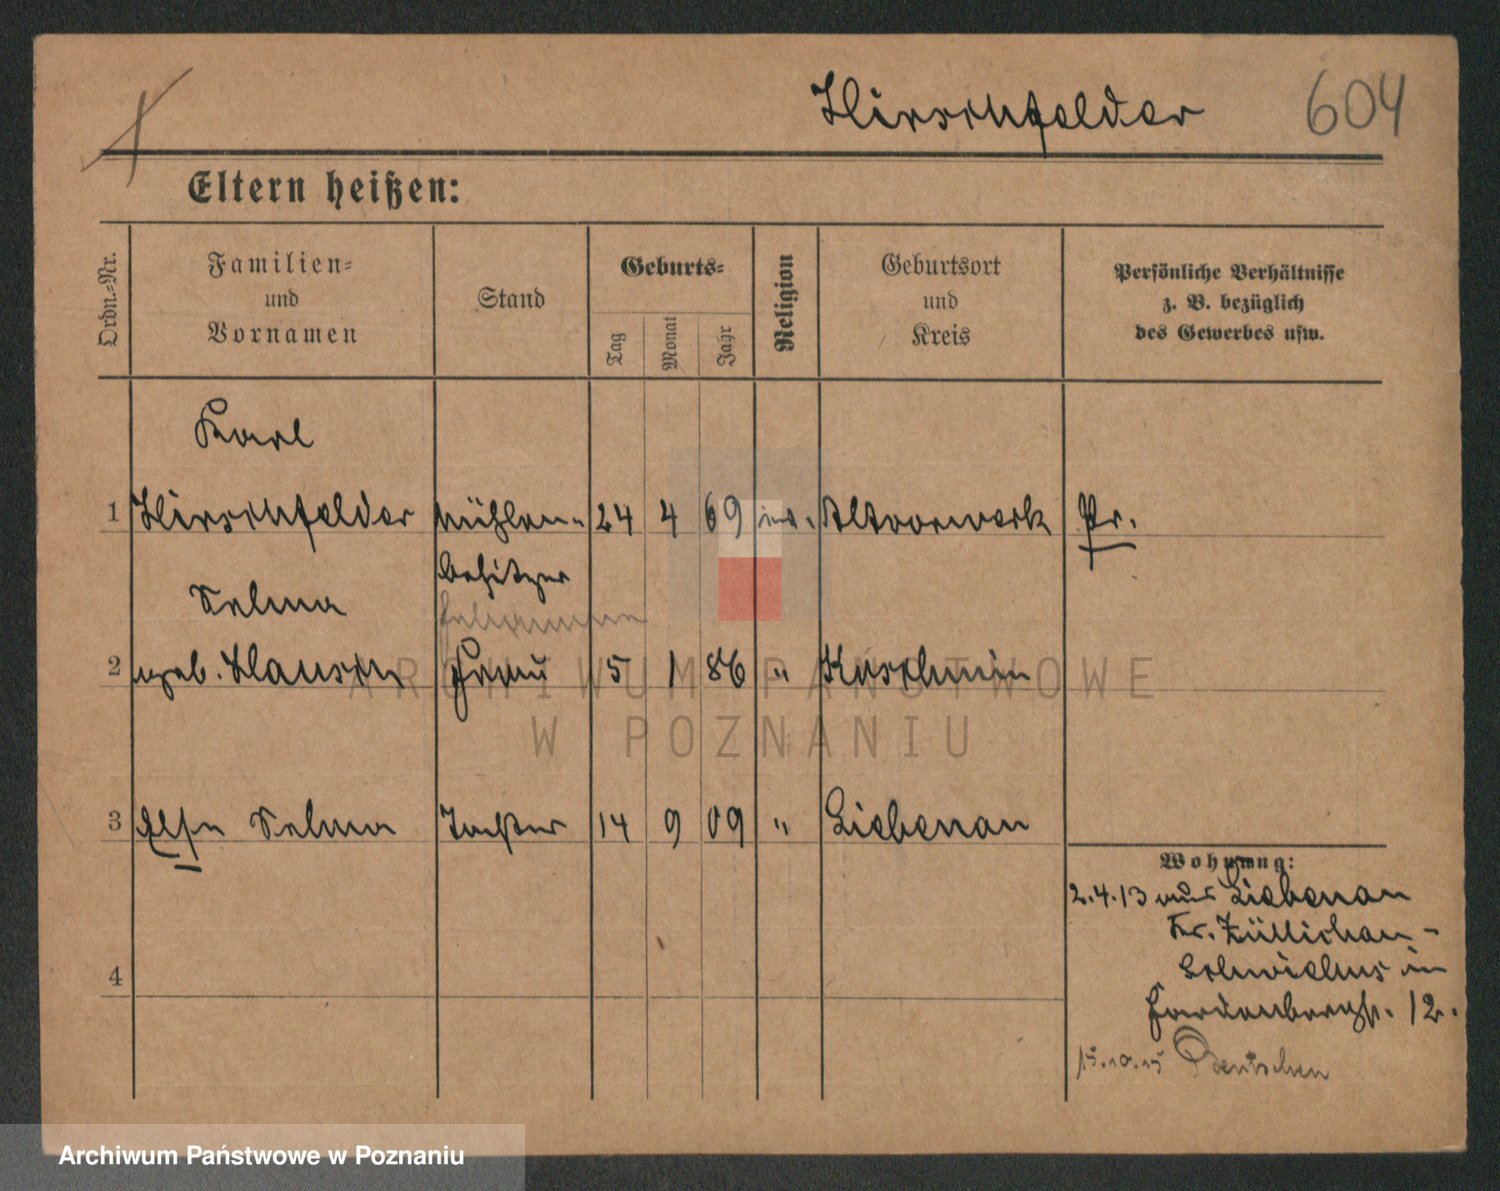 Hirschfelder 604
Eltern heißen:
Ordn.-Nr.
Familien-
und
Vornamen
Stand
Geburts-
Tag
Monat
Jahr
Religion
Geburtsort
und
Kreis
Persönliche Verhältnisse
z. B. bezüglich
des Gewerbes usw.
Karl
1 Hirschfelder Mühlen- 24 4 69 ev. Altvorwerk Pr.
besitzer
Selma
2 geb. Hausch Frau 5 1 86 " Kuschmin
3 Else Selma Tochter 14 9 09 " Liebenau
Wohnung:
2.4.13 aus Liebenau
Kr. Züllichau-
Schwiebus in
12.
4
15.10.15 Bentschen
ARCHIWUM PAŃSTWOWE
W POZNANIU
Archiwum Państwowe w Poznaniu